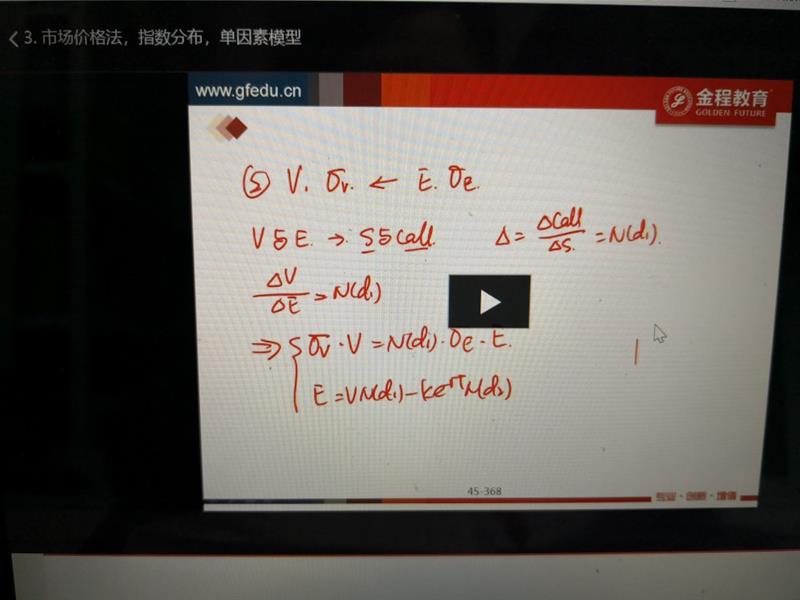 3. 市场价格法，指数分布，单因素模型
www.gfedu.cn
金程教育
GOLDEN FUTURE
⑤ V. σv. ← E. σE.
V与E. → S与Call. Δ = ΔCall/ΔS. = N(d₁).
ΔV/ΔE = N(d₁)
⇒ { σv · V = N(d₁) · σE · E.
E = VN(d₁) - Ke⁻ʳᵀN(d₂)
45-368
专业·创新·增值